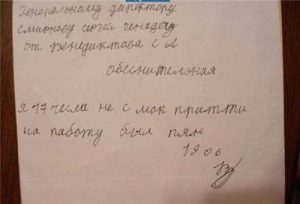 Генеральному директору
Смирнову Сергей Генадьеву
от Венедиктова С А
Обеснительная
Я 17 числа не с мок притти
на работу был пян
19 06